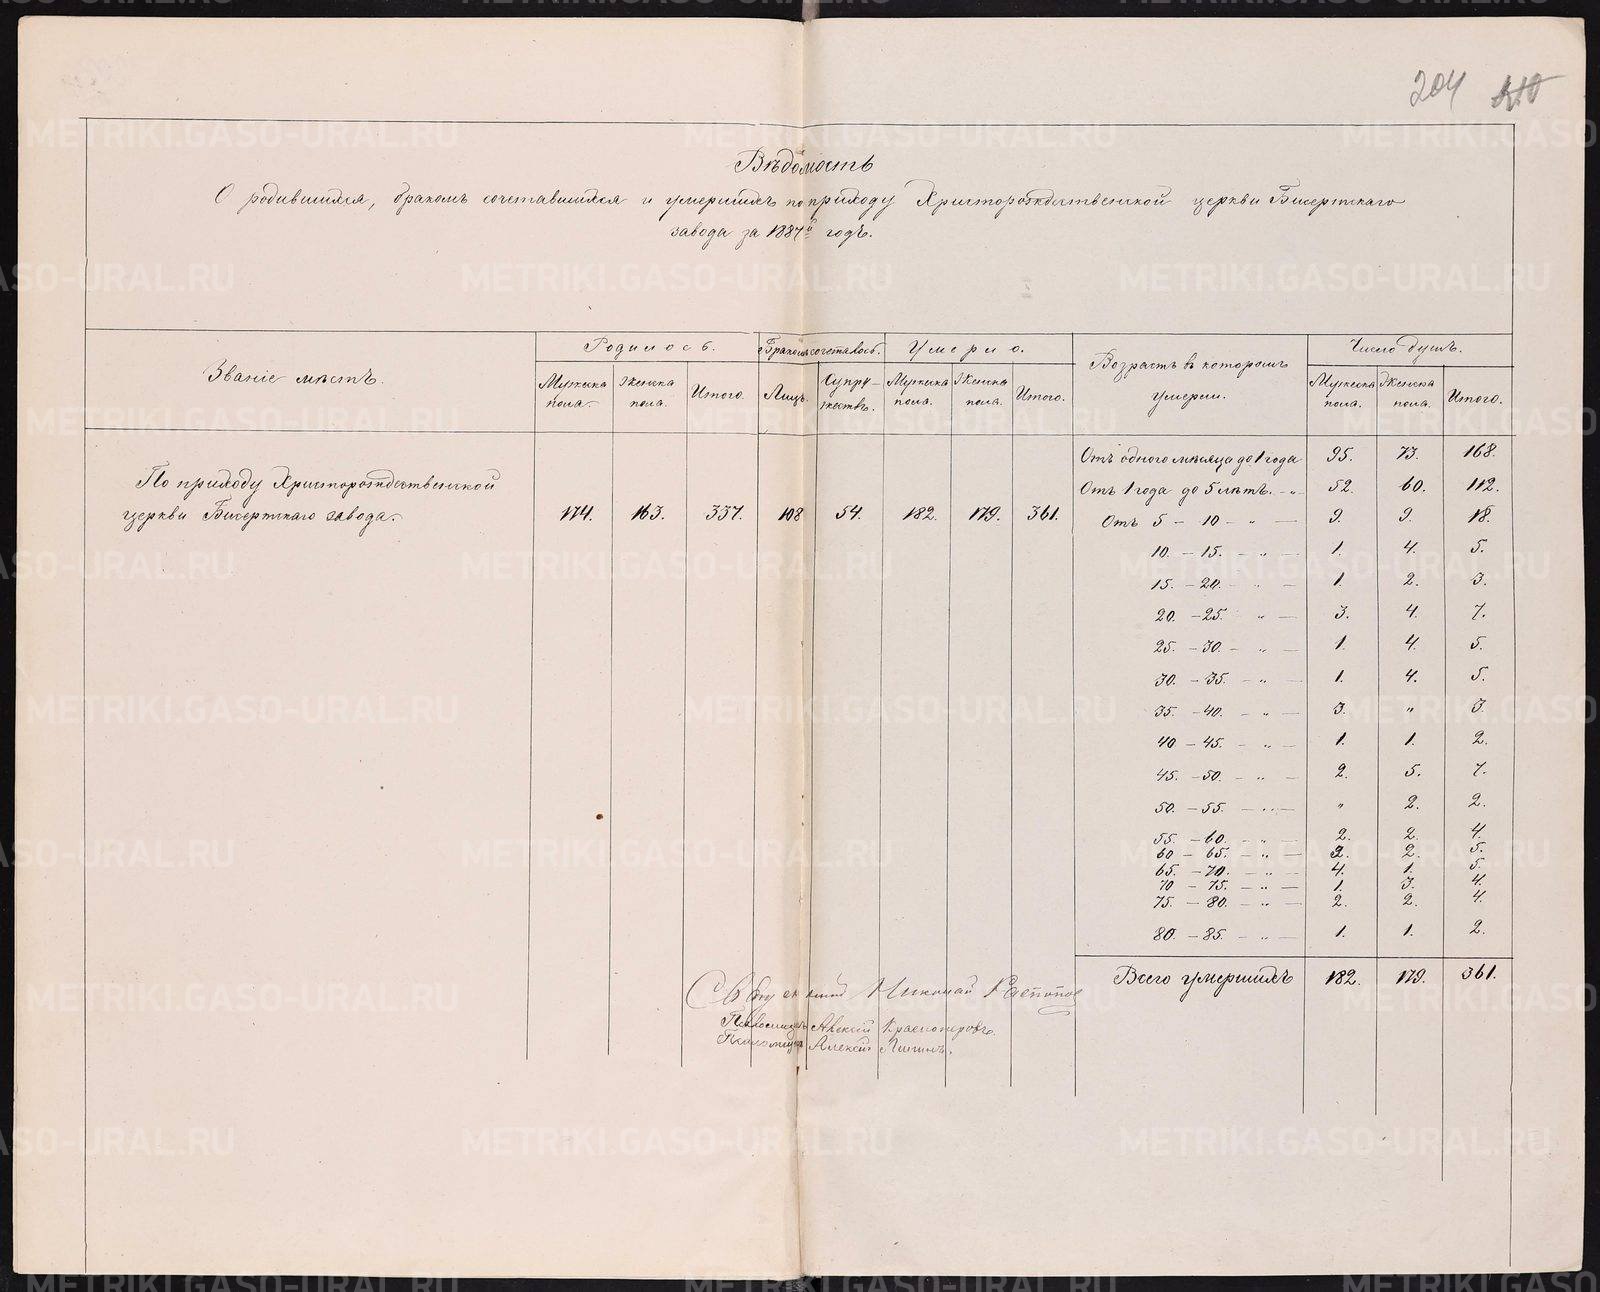 204
Вѣдомость
О родившихся, бракомъ сочетавшихся и умершихъ по приходу Христорождественской церкви Бисертскаго
завода за 1887й годъ.
Званіе мѣстъ. Родилось. Бракомъ сочеталось. Умерло. Возрастъ въ которомъ умерли. Число душъ.
Мужеска пола. Женска пола. Итого. Лицъ. Супружествъ. Мужеска пола. Женска пола. Итого. Мужеска пола. Женска пола. Итого.
По приходу Христорождественской
церкви Бисертскаго завода. 174. 163. 337. 108 54. 182. 179. 361.
Отъ одного мѣсяца до 1 года 95. 73. 168.
Отъ 1 года до 5 лѣтъ. - „ 52. 60. 112.
Отъ 5 - 10 - „ - 9. 9. 18.
10. - 15. - „ - 1. 4. 5.
15. - 20. - „ - 1. 2. 3.
20. - 25. „ - 3. 4. 7.
25. - 30. - „ - 1. 4. 5.
30. - 35. - „ - 1. 4. 5.
35. - 40. - „ - 3. „ 3.
40 - 45. - „ - 1. 1. 2.
45. - 50. - „ - 2. 5. 7.
50. - 55. - „ - „ 2. 2.
55. - 60. - „ - 2. 2. 4.
60 - 65. - „ - 2. 5.
65. - 70. - „ - 4. 1. 5.
70 - 75. - „ - 1. 3. 4.
75. - 80. - „ - 2. 2. 4.
80. - 85. - „ - 1. 1. 2.
Всего умершихъ 182. 179. 361.
Николай
Псаломщикъ Алексій
Псаломщикъ Алексій
METRIKI.GASO-URAL.RU